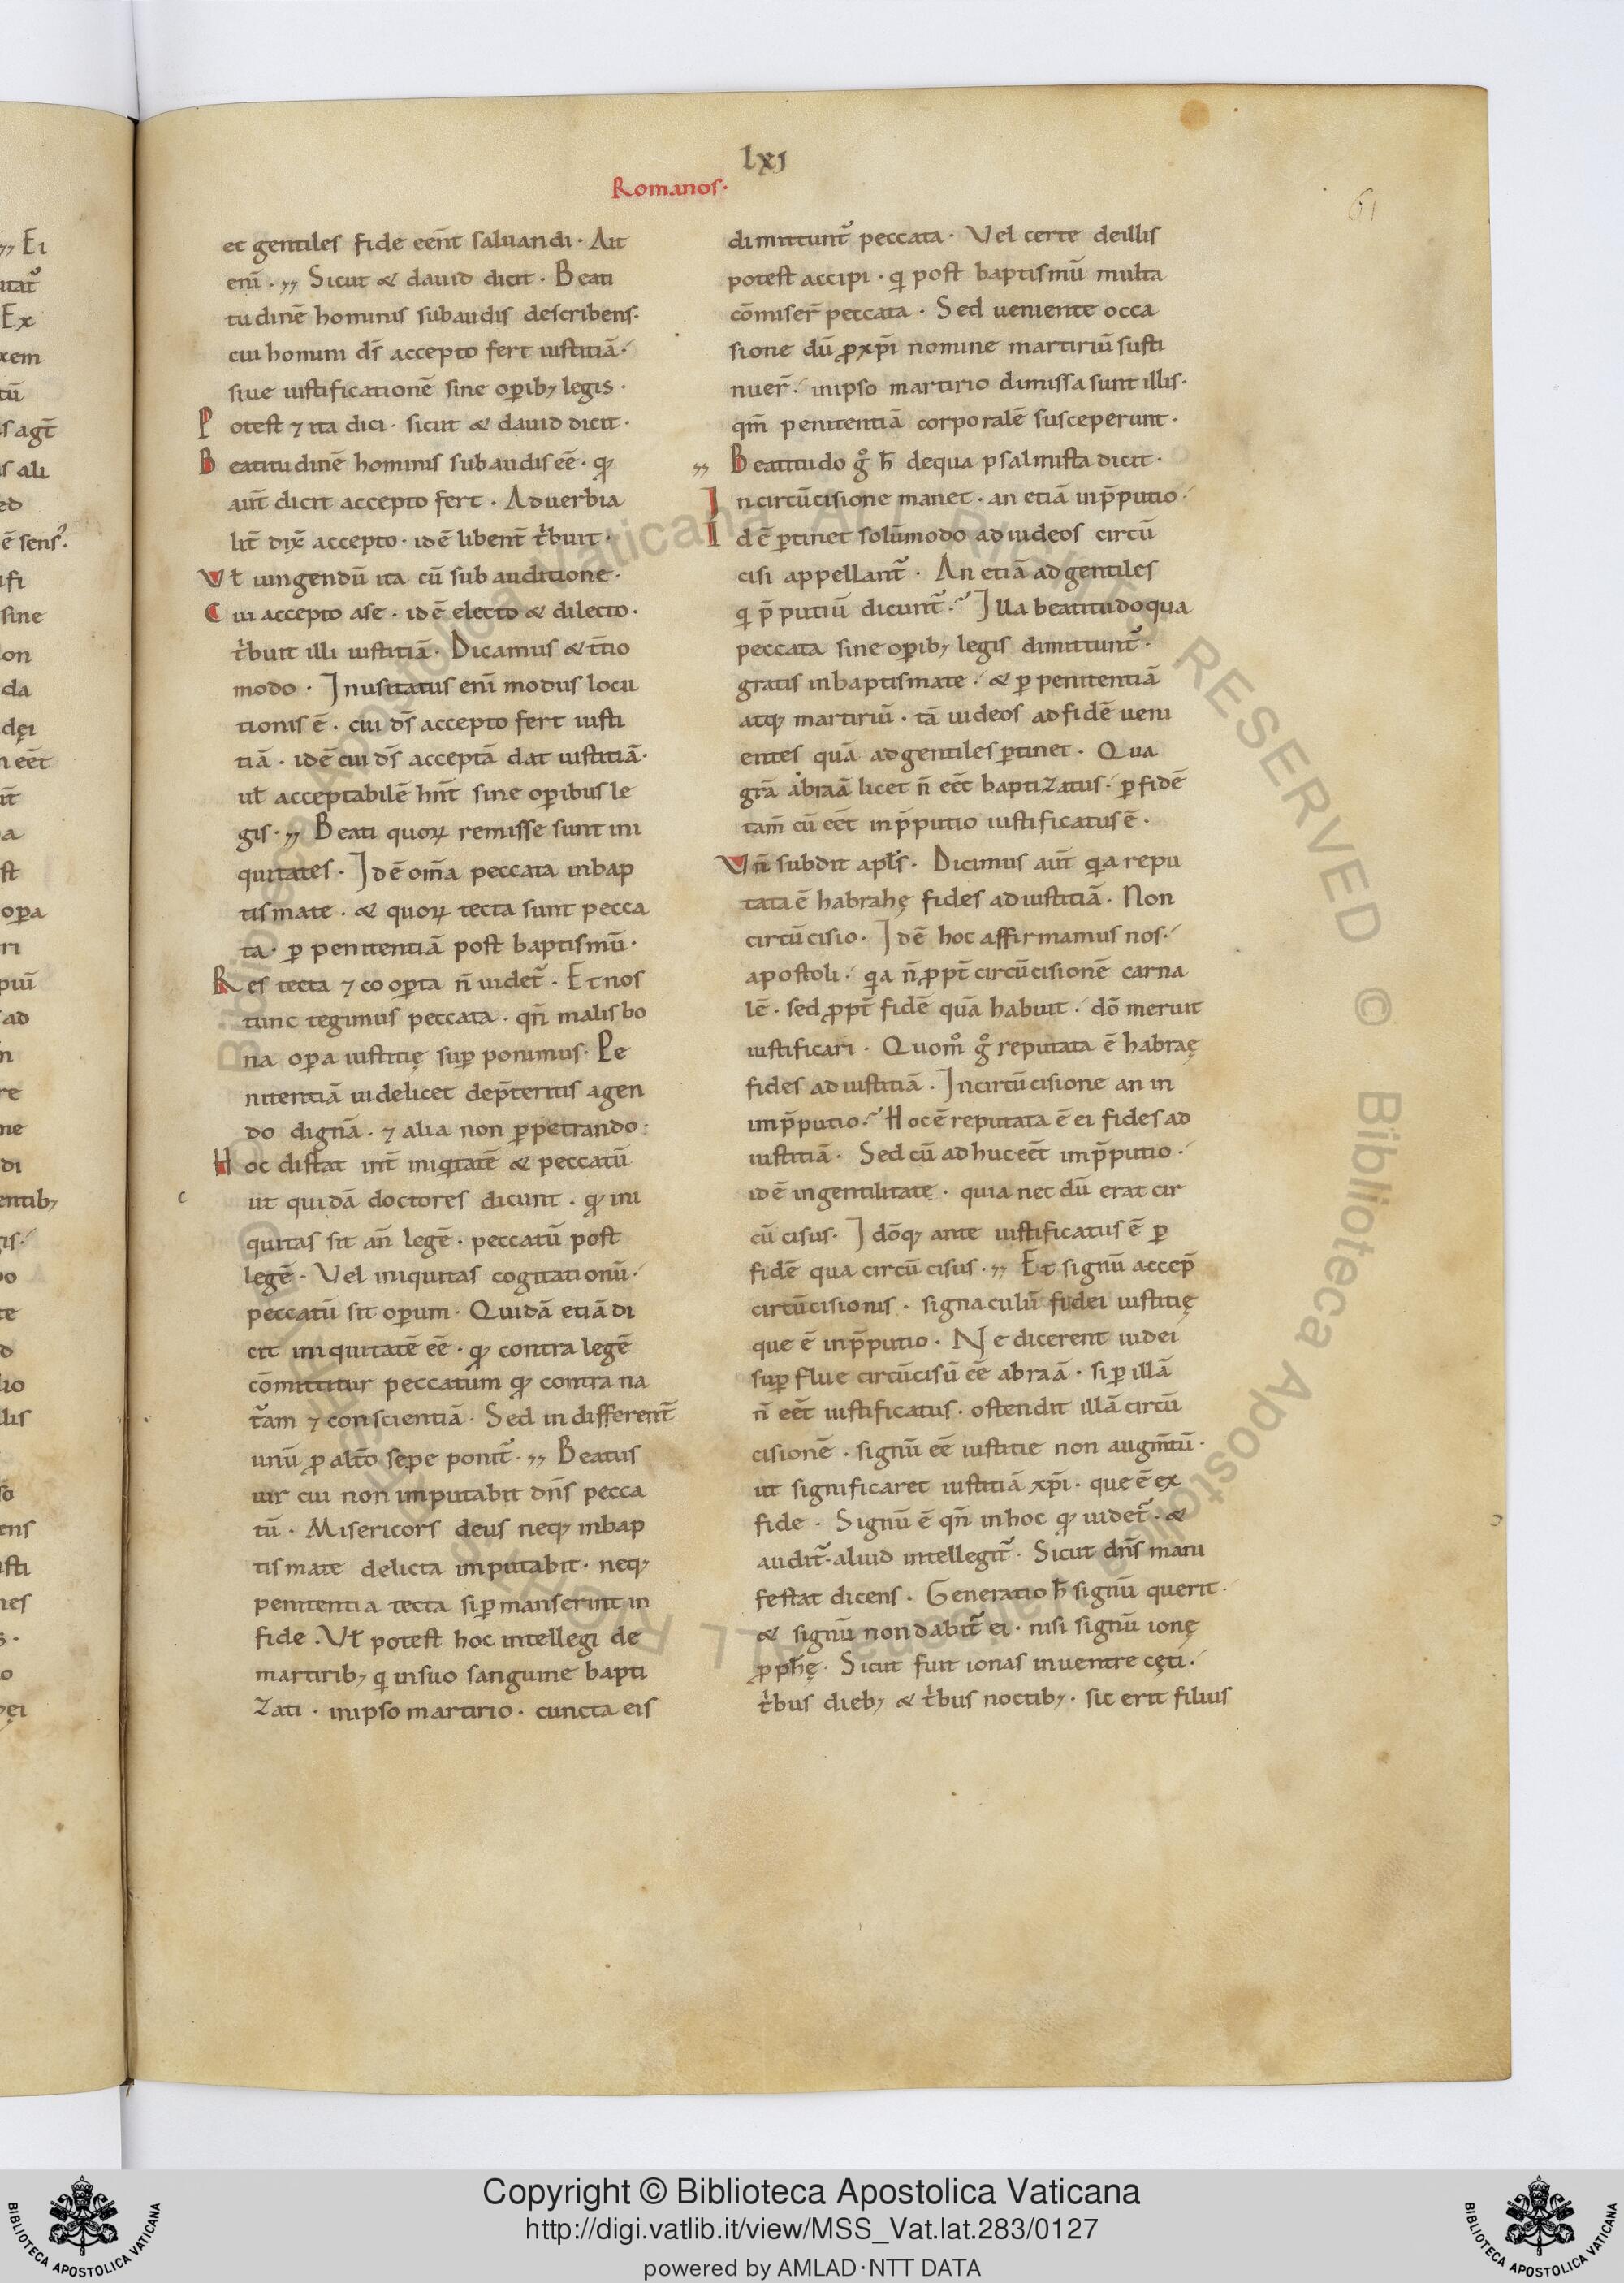 lxj
Romanos·
61
et gentiles fide eēnt saluandi· Ait
eni̅· ,, Sicut & dauid dicit· Beati
tudinē hominis subaudis describens·
cui homini ds̅ accepto fert iustitiā·
siue iustificationē sine oꝑib; legis·
Potest ⁊ ita dici· sicut & dauid dicit·
Beatitudinē hominis subaudis eē· qđ
aut̅ dicit accepto fert· Aduerbia
lit̅ dix̅ accepto· idē libent̅ tͥbuit·
Vt iungendū ita cū subauditione·
Cui accepto a se· idē electo & dilecto·
tͥbuit illi iustitiā· Dicamus & t̅tio
modo· Inusitatus eni̅ modus locu
tionis ē· cui ds̅ accepto fert iusti
tiā· idē cui ds̅ acceptā dat iustitiā·
uł acceptabilē hn̅t sine oꝑibus le
gis· ,, Beati quoꝝ remisse sunt ini
quitates· Idē om̅a peccata in bap
tismate· & quoꝝ tecta sunt pecca
ta· ꝑ penitentiā post baptismū·
Res tecta ⁊ cooꝑta n̅ uidet̅· Et nos
tunc tegimus peccata· qn̅ malis bo
na oꝑa iustitię suꝑ ponimus· Pe
nitentiā uidelicet de p̅teritis agen
do dignā· ⁊ alia non ꝑpetrando·
Hoc distat int̅ iniqͥtatē & peccatū
ut quidā doctores dicunt· qđ ini
quitas sit an̅ legē· peccatū post
legē· Vel iniquitas cogitationū·
peccatū sit oꝑum· Quidā etiā di
cit iniquitatē eē· qđ contra legē
cōmittitur peccatum qđ contra na
t̅am ⁊ conscientiā· Sed indifferent̅
unū ꝓ alt̅o sepe ponit̅· ,, Beatus
uir cui non imputabit dn̅s pecca
tū· Misericors deus neq; in bap
tismate delicta imputabit· neq;
penitentia tecta si ꝑmanserint in
fide· Vł potest hoc intellegi de
martirib; qͥ in suo sanguine bapti
zati· in ipso martirio· cuncta eis
dimittunt̅ peccata· Vel certe de illis
potest accipi· qͥ post baptismū multa
cōmiser̅ peccata· Sed ueniente occa
sione dū ꝓ xp̅i nomine martiriū susti
nuer̅· in ipso martirio dimissa sunt illis·
qm̅ penitentiā corporalē susceperunt·
,, Beatitudo gͦ h̅ de qua psalmista dicit·
In circūcisione manet· an etiā in p̅putio·
Idē ꝑtinet solūmodo ad iudeos circū
cisi appellant̅· An etiā ad gentiles
qͥ p̅putiū dicunt̅· Illa beatitudo qua
peccata sine oꝑib; legis dimittunt̅·
gratis in baptismate· & ꝑ penitentiā
atq; martiriū· tā iudeos ad fidē ueni
entes quā ad gentiles ꝑtinet· Qua
gr̅a abraā licet n̅ eēt baptizatus· ꝑ fidē
tam̅ cū eēt in p̅putio iustificatus ē·
Vn̅ subdit apl̅s· Dicimus aut̅ qͥa repu
tata ē habrahę fides ad iustitiā· Non
circūcisio· Idē hoc affirmamus nos·
apostoli· qͥa n̅ ꝓpt̅ circūcisionē carna
lē· sed ꝓpt̅ fidē quā habuit· dō meruit
iustificari· Quomͦ gͦ reputata ē habraę
fides ad iustitiā· In circūcisione an in
imp̅putio· Hoc ē reputata ē ei fides ad
iustitiā· Sed cū adhuc eēt imp̅putio·
idē in gentilitate· quia necdū erat cir
cūcisus· Idōq; ante iustificatus ē ꝑ
fidē qua circūcisus· ,, Et signū accep̅
circūcisionis· signaculū fidei iustitię
que ē in p̅putio· Ne dicerent iudei
suꝑflue circūcisū eē abraā· si ꝑ illā
n̅ eēt iustificatus· ostendit illā circū
cisionē· signū eē iustitie non augm̅tū·
ut significaret iustitiā xp̅i· que ē ex
fide· Signū ē qn̅ in hoc qđ uidet̅· &
audit̅· aliud intellegit̅· Sicut dn̅s mani
festat dicens· Generatio h̅ signū querit·
& signū non dabit̅ ei· nisi signū ionę
ꝓph̅ę· Sicut fuit ionas in uentre cęti·
tͥbus dieb; & tͥbus noctib;· sic erit filius
Copyright © Biblioteca Apostolica Vaticana
http://digi.vatlib.it/view/MSS_Vat.lat.283/0127
powered by AMLAD·NTT DATA